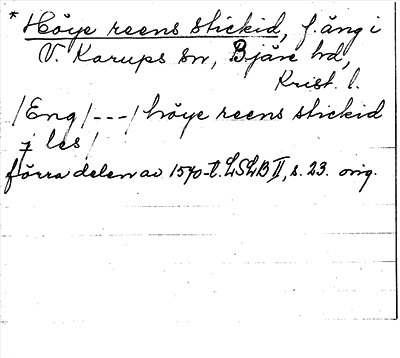 * Höye reens stickid, f. äng i
V. Karups sn, Bjäre hd,
Krist. l.
/Eng/---/höye reens stickid
j les/
förra delen av 1570-t. LSLB II, s. 23. orig.